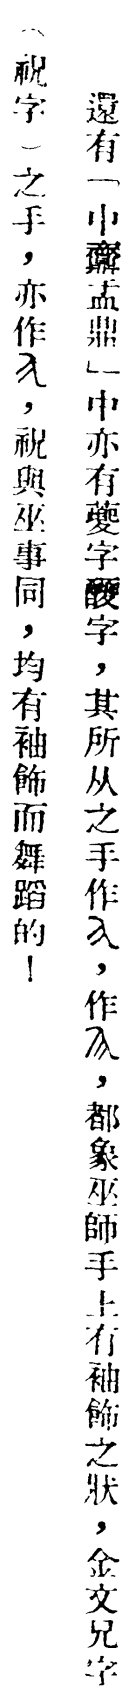 還有「中齋盂鼎」中亦有夔字醆字，其所从之手作，作，都象巫師手上有袖飾之狀，金文兄字
（祝字）之手，亦作，祝與巫事同，均有袖飾而舞蹈的！